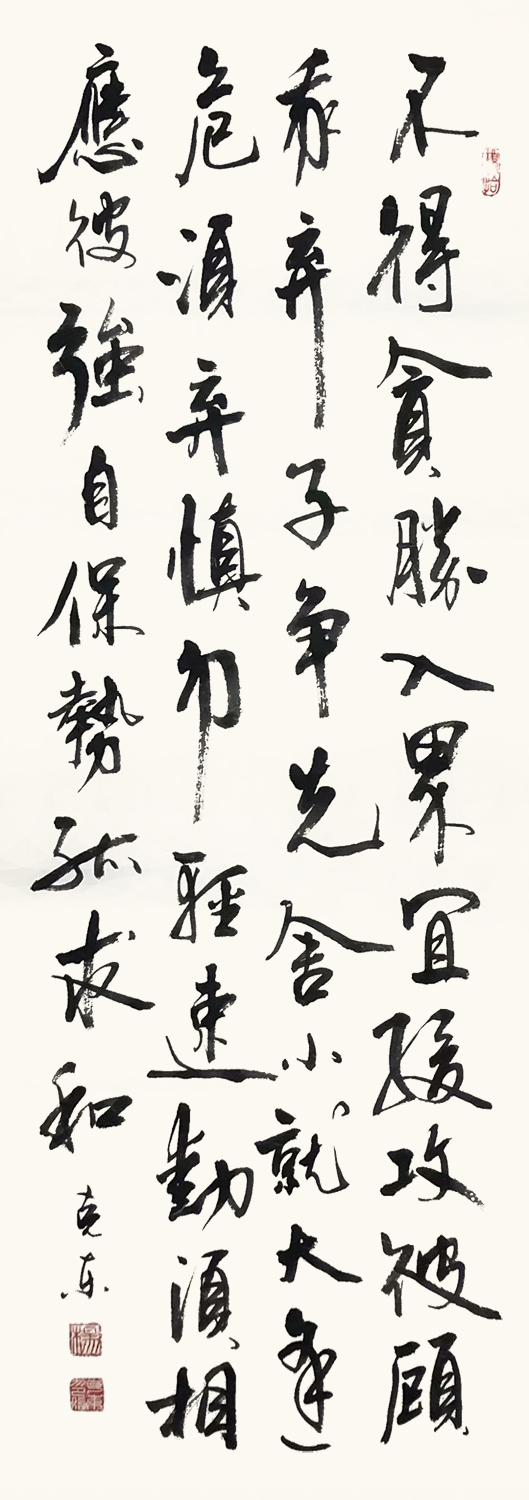 不得貪勝入界宜緩攻彼顧
我弃子争先舍小就大逢
危須弃慎勿輕速動須相
應彼強自保勢孤求和
克東